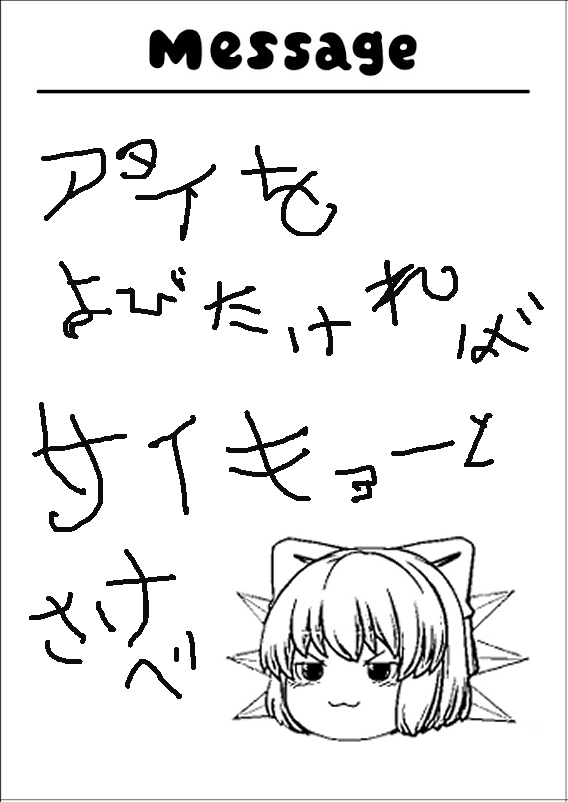 Message
アタイを
よびたければ
サイキョーと
さけべ